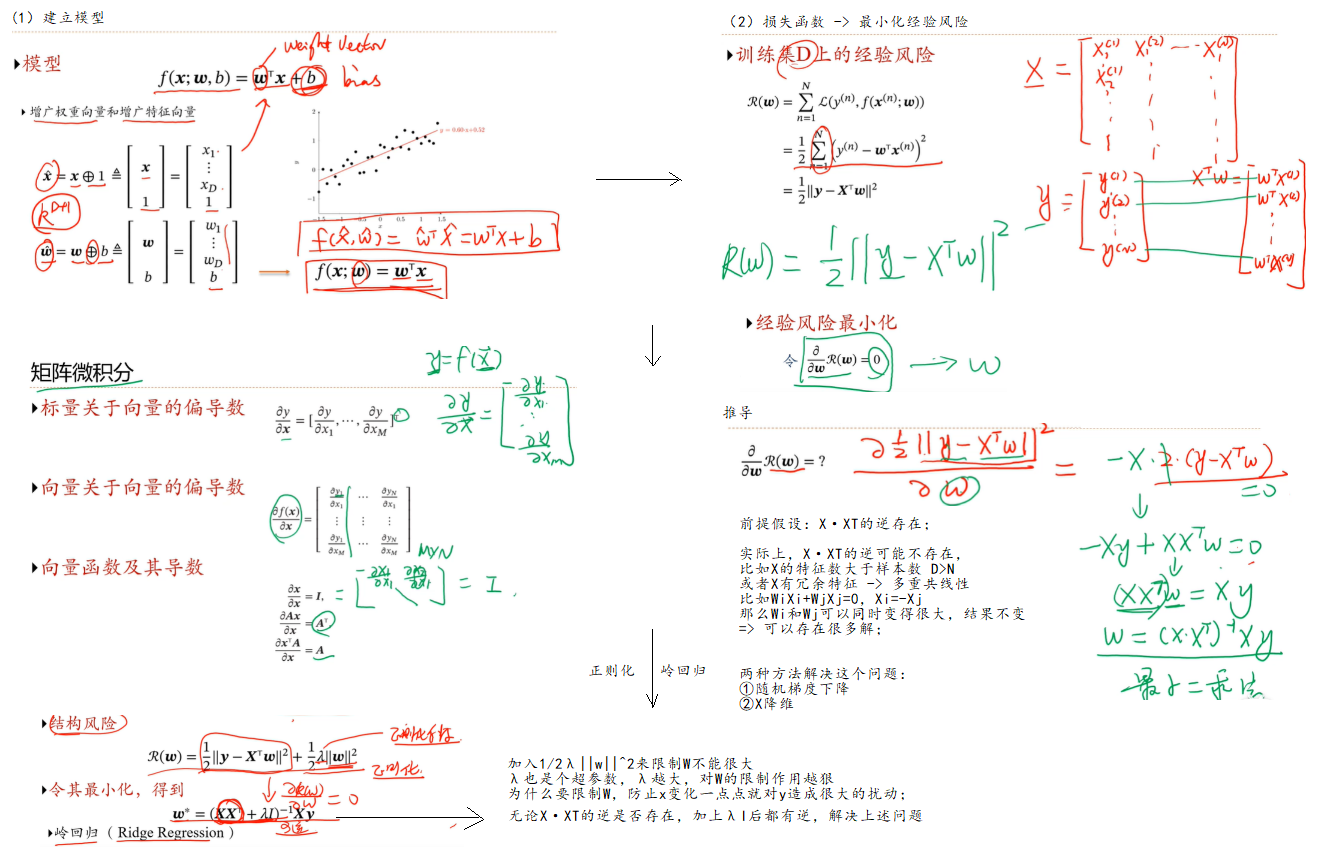 (1) 建立模型
▸模型
weight vector
f(x; w, b) = wᵀx + b
bias
▸增广权重向量和增广特征向量
x̂ = x ⊕ 1 ≜ [x 1] = [x₁ ⋮ x_D 1]
R^{D+1}
ŵ = w ⊕ b ≜ [w b] = [w₁ ⋮ w_D b]
f(x̂, ŵ) = ŵᵀx̂ = wᵀx + b
f(x; w) = wᵀx
(2) 损失函数 -> 最小化经验风险
▸训练集D上的经验风险
R(w) = Σ_{n=1}^{N} L(y^(n), f(x^(n); w))
= 1/2 Σ_{n=1}^{N} (y^(n) − wᵀx^(n))²
= 1/2 ||y − Xᵀw||²
R(w) = 1/2 ||y − Xᵀw||²
X =
y = [y^(1) y^(2) ⋮ y^(N)]
Xᵀw =
▸经验风险最小化
令 ∂/∂w R(w) = 0
→ w
矩阵微积分
y = f(x)
▸标量关于向量的偏导数
∂y/∂x = [∂y/∂x₁, ⋯, ∂y/∂x_M]ᵀ
▸向量关于向量的偏导数
∂f(x)/∂x = [∂y₁/∂x₁ ⋯ ∂y_N/∂x₁ ⋮ ⋮ ⋮ ∂y₁/∂x_M ⋯ ∂y_N/∂x_M]
M×N
▸向量函数及其导数
∂x/∂x = I,
= I
∂Ax/∂x = Aᵀ
∂xᵀA/∂x = A
推导
∂/∂w R(w) = ?
∂ 1/2 ||y − Xᵀw||² / ∂w = −X · 2 · (y − Xᵀw)
= 0
−Xy + XXᵀw = 0
(XXᵀ)w = Xy
w = (X·Xᵀ)⁻¹Xy
最小二乘法
前提假设: X·XT的逆存在;
实际上, X·XT的逆可能不存在,
比如X的特征数大于样本数 D>N
或者X有冗余特征 -> 多重共线性
比如WiXi+WjXj=0, Xi=-Xj
那么Wi和Wj可以同时变得很大, 结果不变
=> 可以存在很多解;
两种方法解决这个问题:
①随机梯度下降
②X降维
正则化
岭回归
▸结构风险
R(w) = 1/2 ||y − Xᵀw||² + 1/2 λ||w||²
正则化
▸令其最小化, 得到
∂R(w)/∂w = 0
w* = (XXᵀ + λI)⁻¹Xy
▸岭回归 ( Ridge Regression )
加入1/2λ||w||^2来限制W不能很大
λ也是个超参数, λ越大, 对W的限制作用越狠
为什么要限制W, 防止x变化一点点就对y造成很大的扰动;
无论X·XT的逆是否存在, 加上λI后都有逆, 解决上述问题